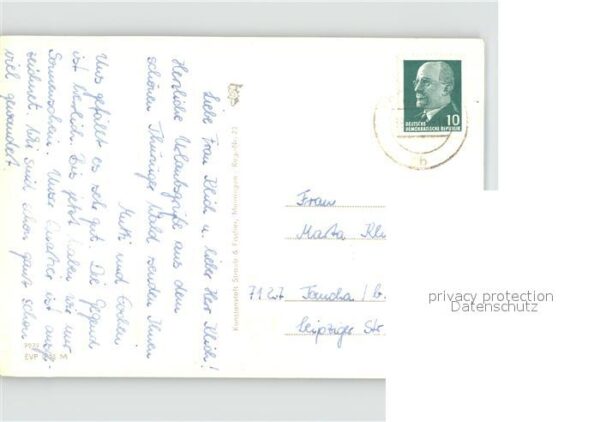 Liebe Frau Klich u. lieber Herr Klich!
Herzliche Urlaubsgrüße aus dem
schönen Thüringer Wald senden Ihnen
Mutti und
Uns gefällt es sehr gut. Die Gegend
ist herrlich. Bis jetzt haben wir nur
Sonnenschein. Unser Quartier ist ausge-
zeichnet. Wir sind schon ganz schön
viel gewandert.
Straub & Fischer, Meiningen
EVP
10
DEUTSCHE
DEMOKRATISCHE REPUBLIK
Frau
Marta Kli
7127 Taucha / b.
Leipziger Str
privacy protection
Datenschutz